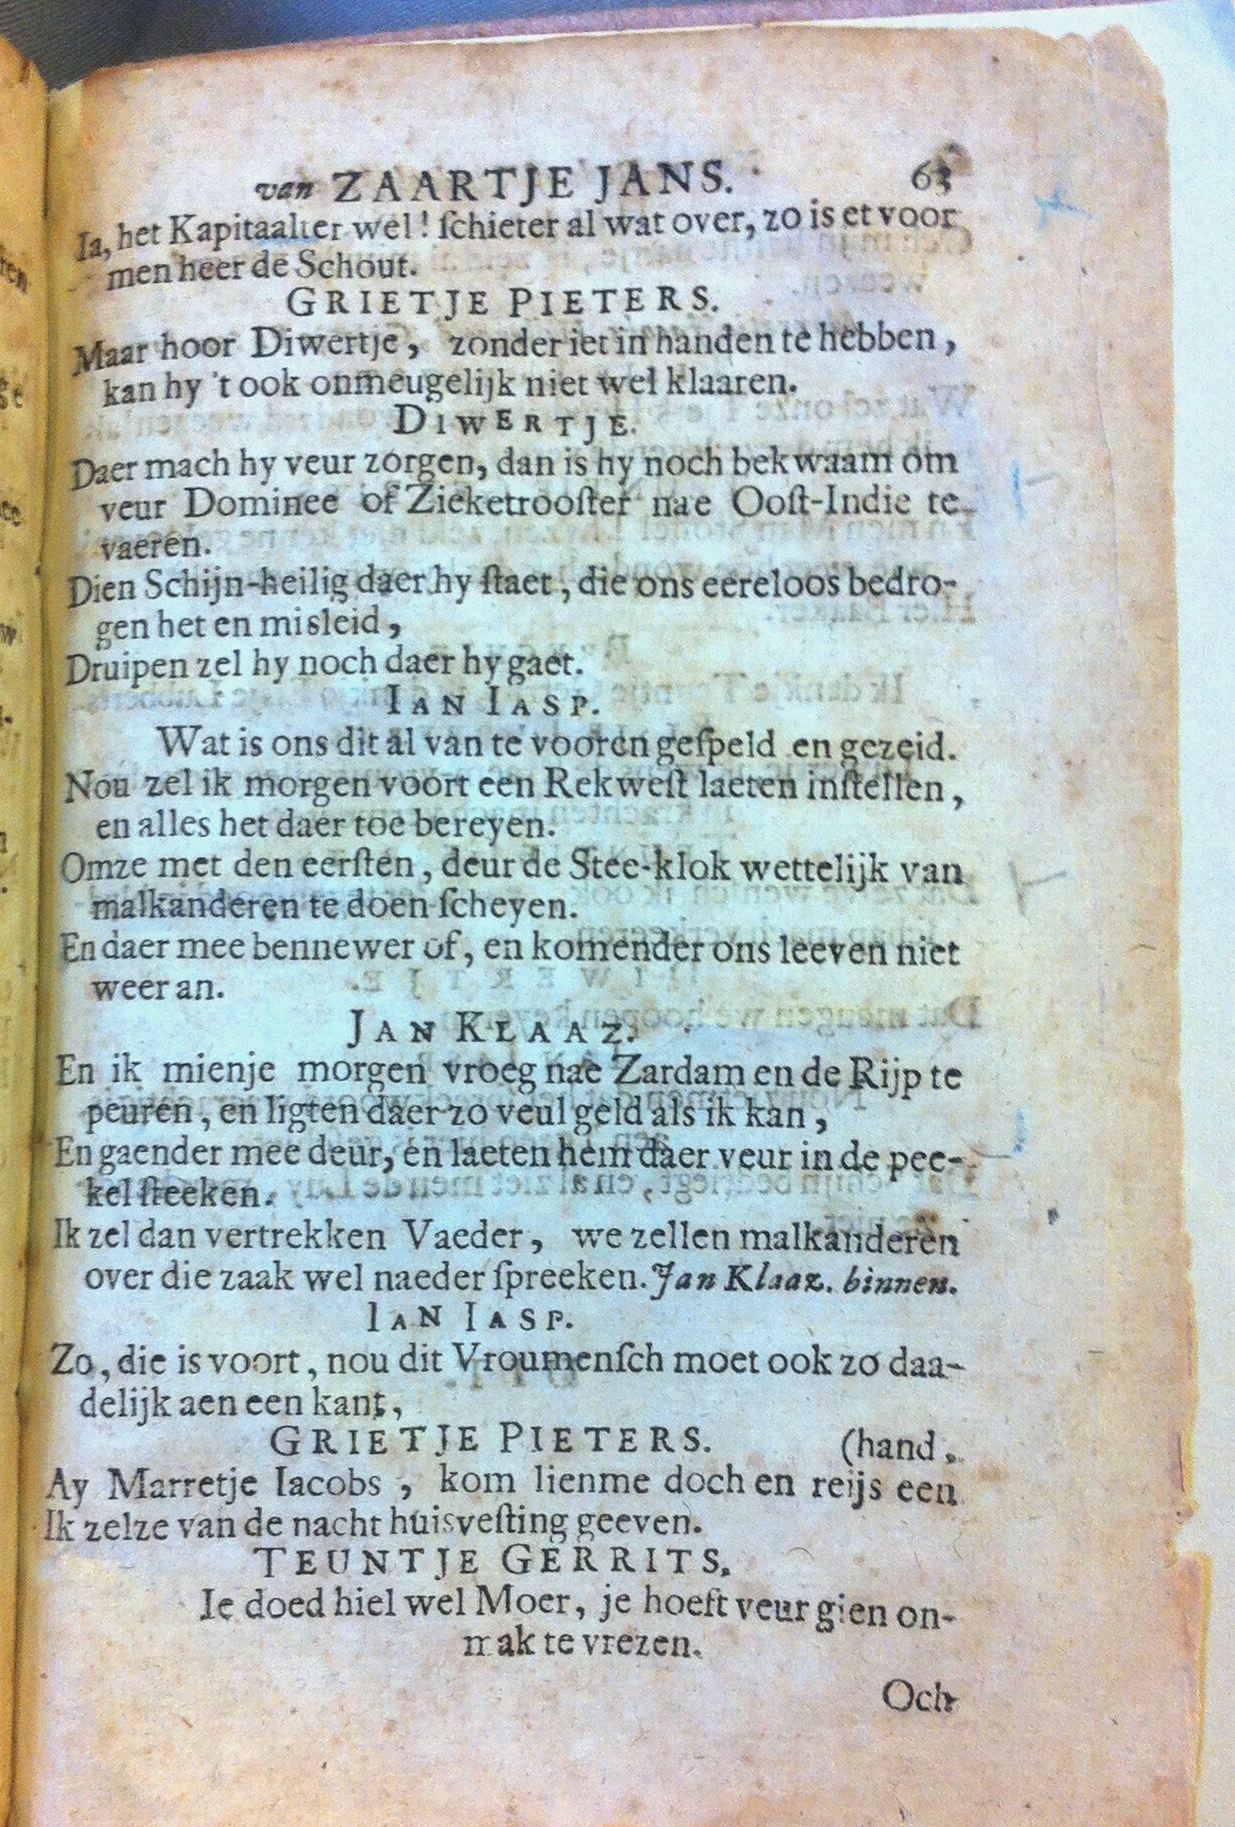 van ZAARTJE JANS. 63
Ia, het Kapitaalter wel! ſchieter al wat over, zo is et voor
men heer de Schout.
GRIETJE PIETERS.
Maar hoor Diwertje, zonder iet in handen te hebben,
kan hy 't ook onmeugelijk niet wel klaaren.
DIWERTJE.
Daer mach hy veur zorgen, dan is hy noch bekwaam om
veur Dominee of Zieketrooſter nae Ooſt-Indie te
vaeren.
Dien Schijn-heilig daer hy ſtaet, die ons eereloos bedro-
gen het en misleid,
Druipen zel hy noch daer hy gaet.
IAN IASP.
Wat is ons dit al van te vooren geſpeld en gezeid.
Nou zel ik morgen voort een Rekweſt laeten inſtellen,
en alles het daer toe bereyen.
Omze met den eerſten, deur de Stee-klok wettelijk van
malkanderen te doen ſcheyen.
En daer mee bennewer of, en komender ons leeven niet
weer an.
JAN KLAAZ.
En ik mienje morgen vroeg nae Zardam en de Rijp te
peuren, en ligten daer zo veul geld als ik kan,
En gaender mee deur, en laeten hem daer veur in de pee-
kel ſteeken.
Ik zel dan vertrekken Vaeder, we zellen malkanderen
over die zaak wel naeder ſpreeken. Jan Klaaz. binnen.
IAN IASP.
Zo, die is voort, nou dit Vroumenſch moet ook zo daa-
delijk aen een kant,
GRIETJE PIETERS. (hand.
Ay Marretje Iacobs, kom lienme doch en reijs een
Ik zelze van de nacht huisveſting geeven.
TEUNTJE GERRITS.
Ie doed hiel wel Moer, je hoeft veur gien on-
mak te vrezen.
Och